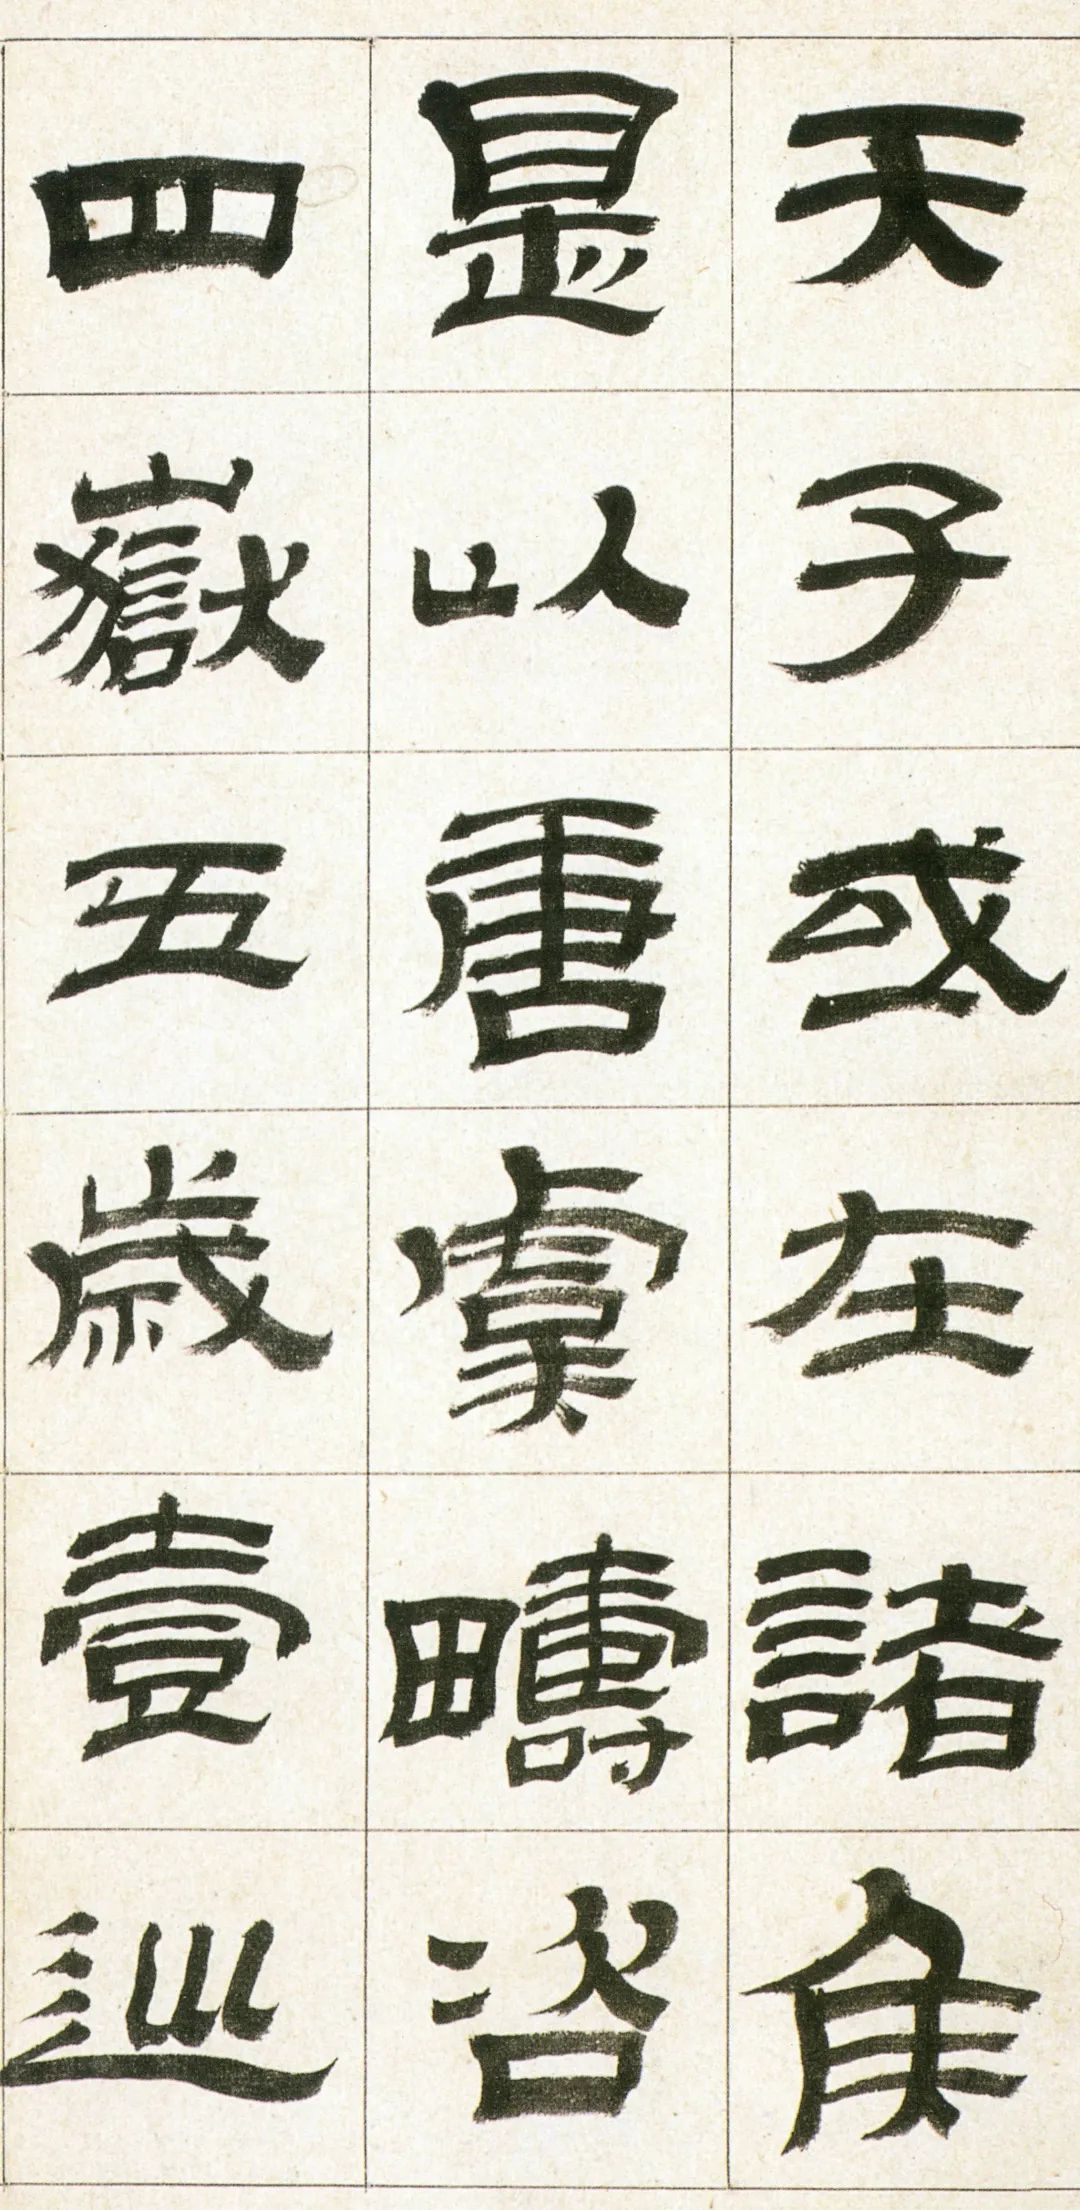 天子或在諸侯
是以唐虞疇咨
四嶽五歲壹巡